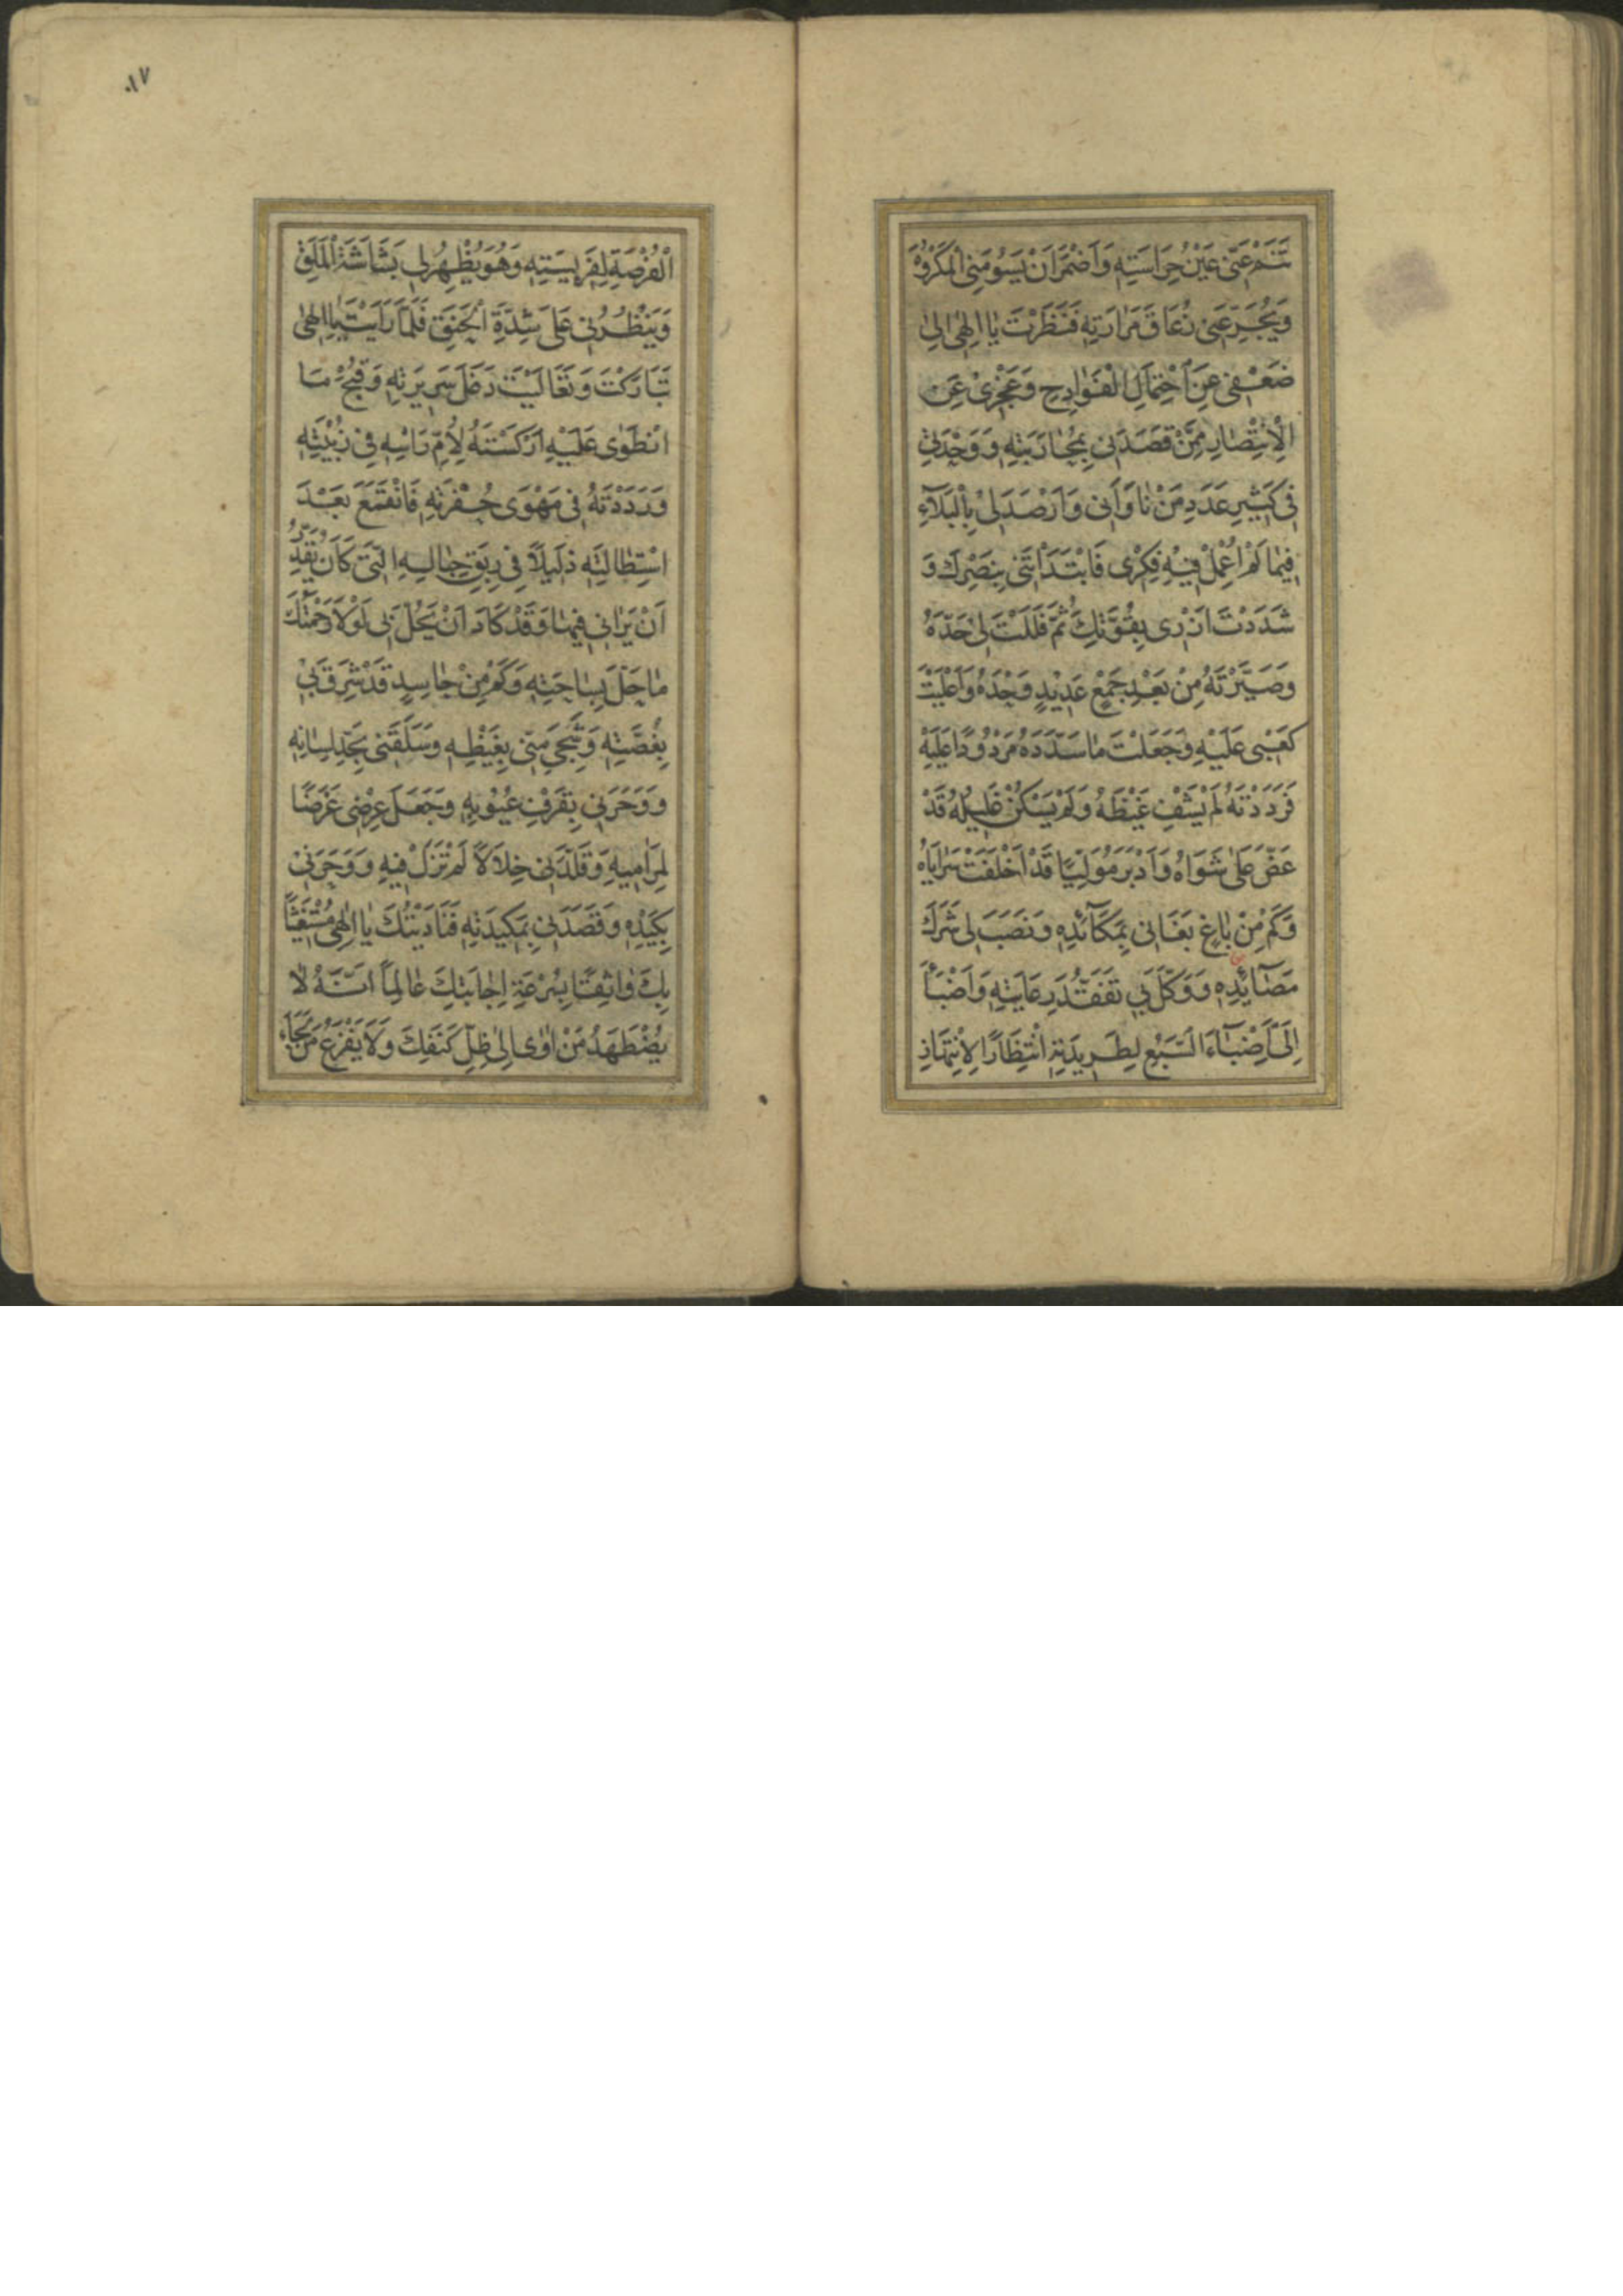 تَنَمْ عَنّى عَيْنُ حِرَاسَتِهِ وَاَضْمَرَ اَنْ يَسُومَنِى الْمَكْرُوهَ
وَيُجَرِّعَنى زُعَاقَ مَرَارَتِهِ فَنَظَرْتَ يَا اِلٰهى اِلىٰ
ضَعْفى عَنِ احْتِمَالِ الْفَوَادِحِ وَعَجْزِىْ عَنِ
الْاِنْتِصَارِ مِمَّنْ قَصَدَنى بِمُحَارَبَتِهِ وَوَحْدَتى
فى كَثيرِ عَدَدِ مَنْ نَاوَانى وَاَرْصَدَ لىْ بِالْبَلَآءِ
فيمَا لَمْ اُعْمِلْ فيْهِ فِكْرى فَابْتَدَأْتَنى بِنَصْرِكَ وَ
شَدَدْتَ اَزْرى بِقُوَّتِكَ ثُمَّ فَلَلْتَ لىٰ حَدَّهُ
وَصَيَّرْتَهُ مِنْ بَعْدِ جَمْعٍ عَديْدٍ وَحْدَهُ وَاَعْلَيْتَ
كَعْبى عَلَيْهِ وَجَعَلْتَ مَا سَدَّدَهُ مَرْدُودًا عَلَيْهِ
فَرَدَدْتَهُ لَمْ يَشْفِ غَيْظَهُ وَلَمْ يَسْكُنْ غَليلُهُ قَدْ
عَضَّ عَلىٰ شَوَاهُ وَاَدْبَرَ مُوَلِّيًا قَدْ اَخْلَفَتْ سَرَايَاهُ
وَكَمْ مِنْ بَاغٍ بَغَانى بِمَكَآئِدِهِ وَنَصَبَ لى شَرَكَ
مَصَآئِدِهِ وَوَكَّلَ بى تَفَقُّدَ رِعَايَتِهِ وَاَضْبَأَ
اِلَىَّ اِضْبَآءَ السَّبُعِ لِطَريدَتِهِ انْتِظَارًا لِاِنْتِهَازِ
١٧
الْفُرْصَةِ لِفَريسَتِهِ وَهُوَ يُظْهِرُ لى بَشَاشَةَ الْمَلَقِ
وَيَنْظُرُنى عَلىٰ شِدَّةِ الْحَنَقِ فَلَمَّا رَاَيْتَ يَا اِلٰهى
تَبَارَكْتَ وَتَعَالَيْتَ دَغَلَ سَريرَتِهِ وَقُبْحَ مَا
انْطَوٰى عَلَيْهِ اَرْكَسْتَهُ لِاُمِّ رَاْسِهِ فى زُبْيَتِهِ
وَرَدَدْتَهُ فى مَهْوٰى حُفْرَتِهِ فَانْقَمَعَ بَعْدَ
اسْتِطَالَتِهِ ذَليلًا فى رِبَقِ حِبَالِهِ الَّتى كَانَ يُقَدِّرُ
اَنْ يَرَانى فيهَا وَقَدْ كَادَ اَنْ يَحُلَّ بى لَوْلَا رَحْمَتُكَ
مَا حَلَّ بِسَاحَتِهِ وَكَمْ مِنْ حَاسِدٍ قَدْ شَرِقَ بى
بِغُصَّتِهِ وَشَجِىَ مِنّى بِغَيْظِهِ وَسَلَقَنى بِحَدِّ لِسَانِهِ
وَوَحَرَنى بِقَرْفِ عُيُوبِهِ وَجَعَلَ عِرْضى غَرَضًا
لِمَرَاميهِ وَقَلَّدَنى خِلَالًا لَمْ تَزَلْ فيهِ وَوَحَرَنى
بِكَيْدِهِ وَقَصَدَنى بِمَكيدَتِهِ فَنَادَيْتُكَ يَا اِلٰهى مُسْتَغيثًا
بِكَ وَاثِقًا بِسُرْعَةِ اِجَابَتِكَ عَالِمًا اَنَّهُ لَا
يُضْطَهَدُ مَنْ اَوٰى اِلىٰ ظِلِّ كَنَفِكَ وَلَا يَفْزَعُ مَنْ لَجَاَ